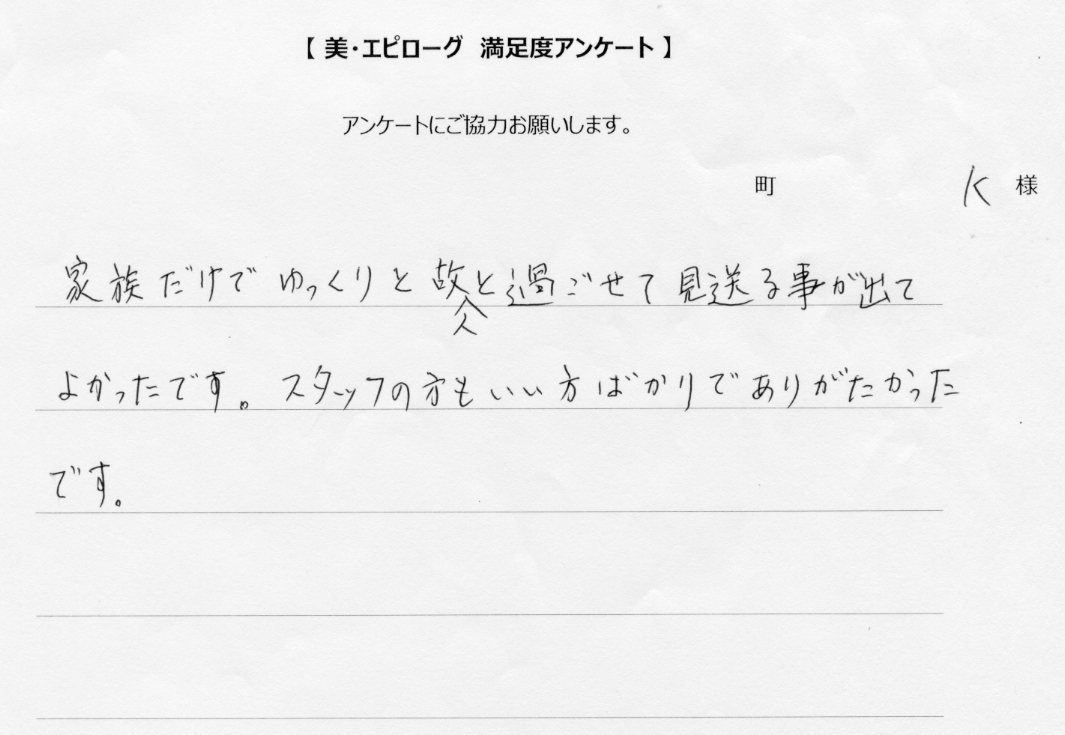 【 美・エピローグ 満足度アンケート 】
アンケートにご協力お願いします。
町 K 様
家族だけでゆっくりと故人と過ごせて見送る事が出て
よかったです。スタッフの方もいい方ばかりでありがたかった
です。